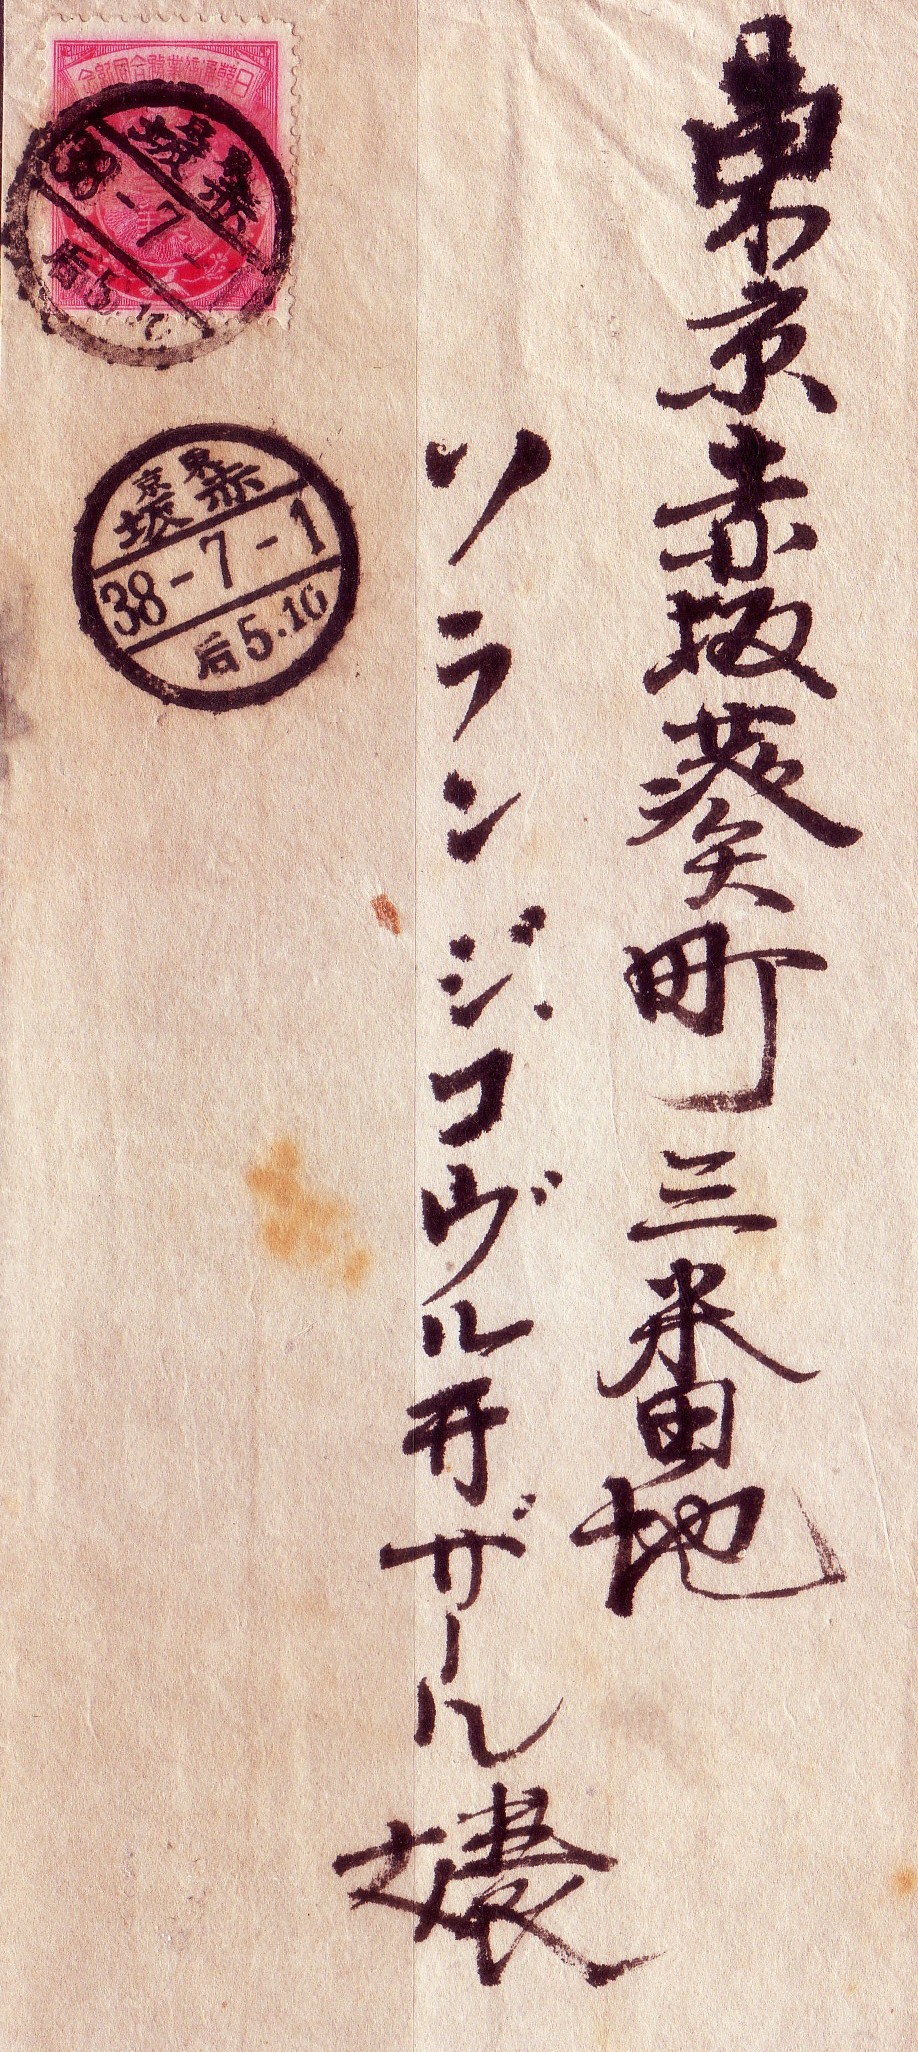 東京赤坂葵町三番地
ソランジ、コヴル井ザール嬢
東京
赤坂
38-7-1
后5.10
日韓通信業務合同紀念
東京
赤坂
38-7-
后5.10